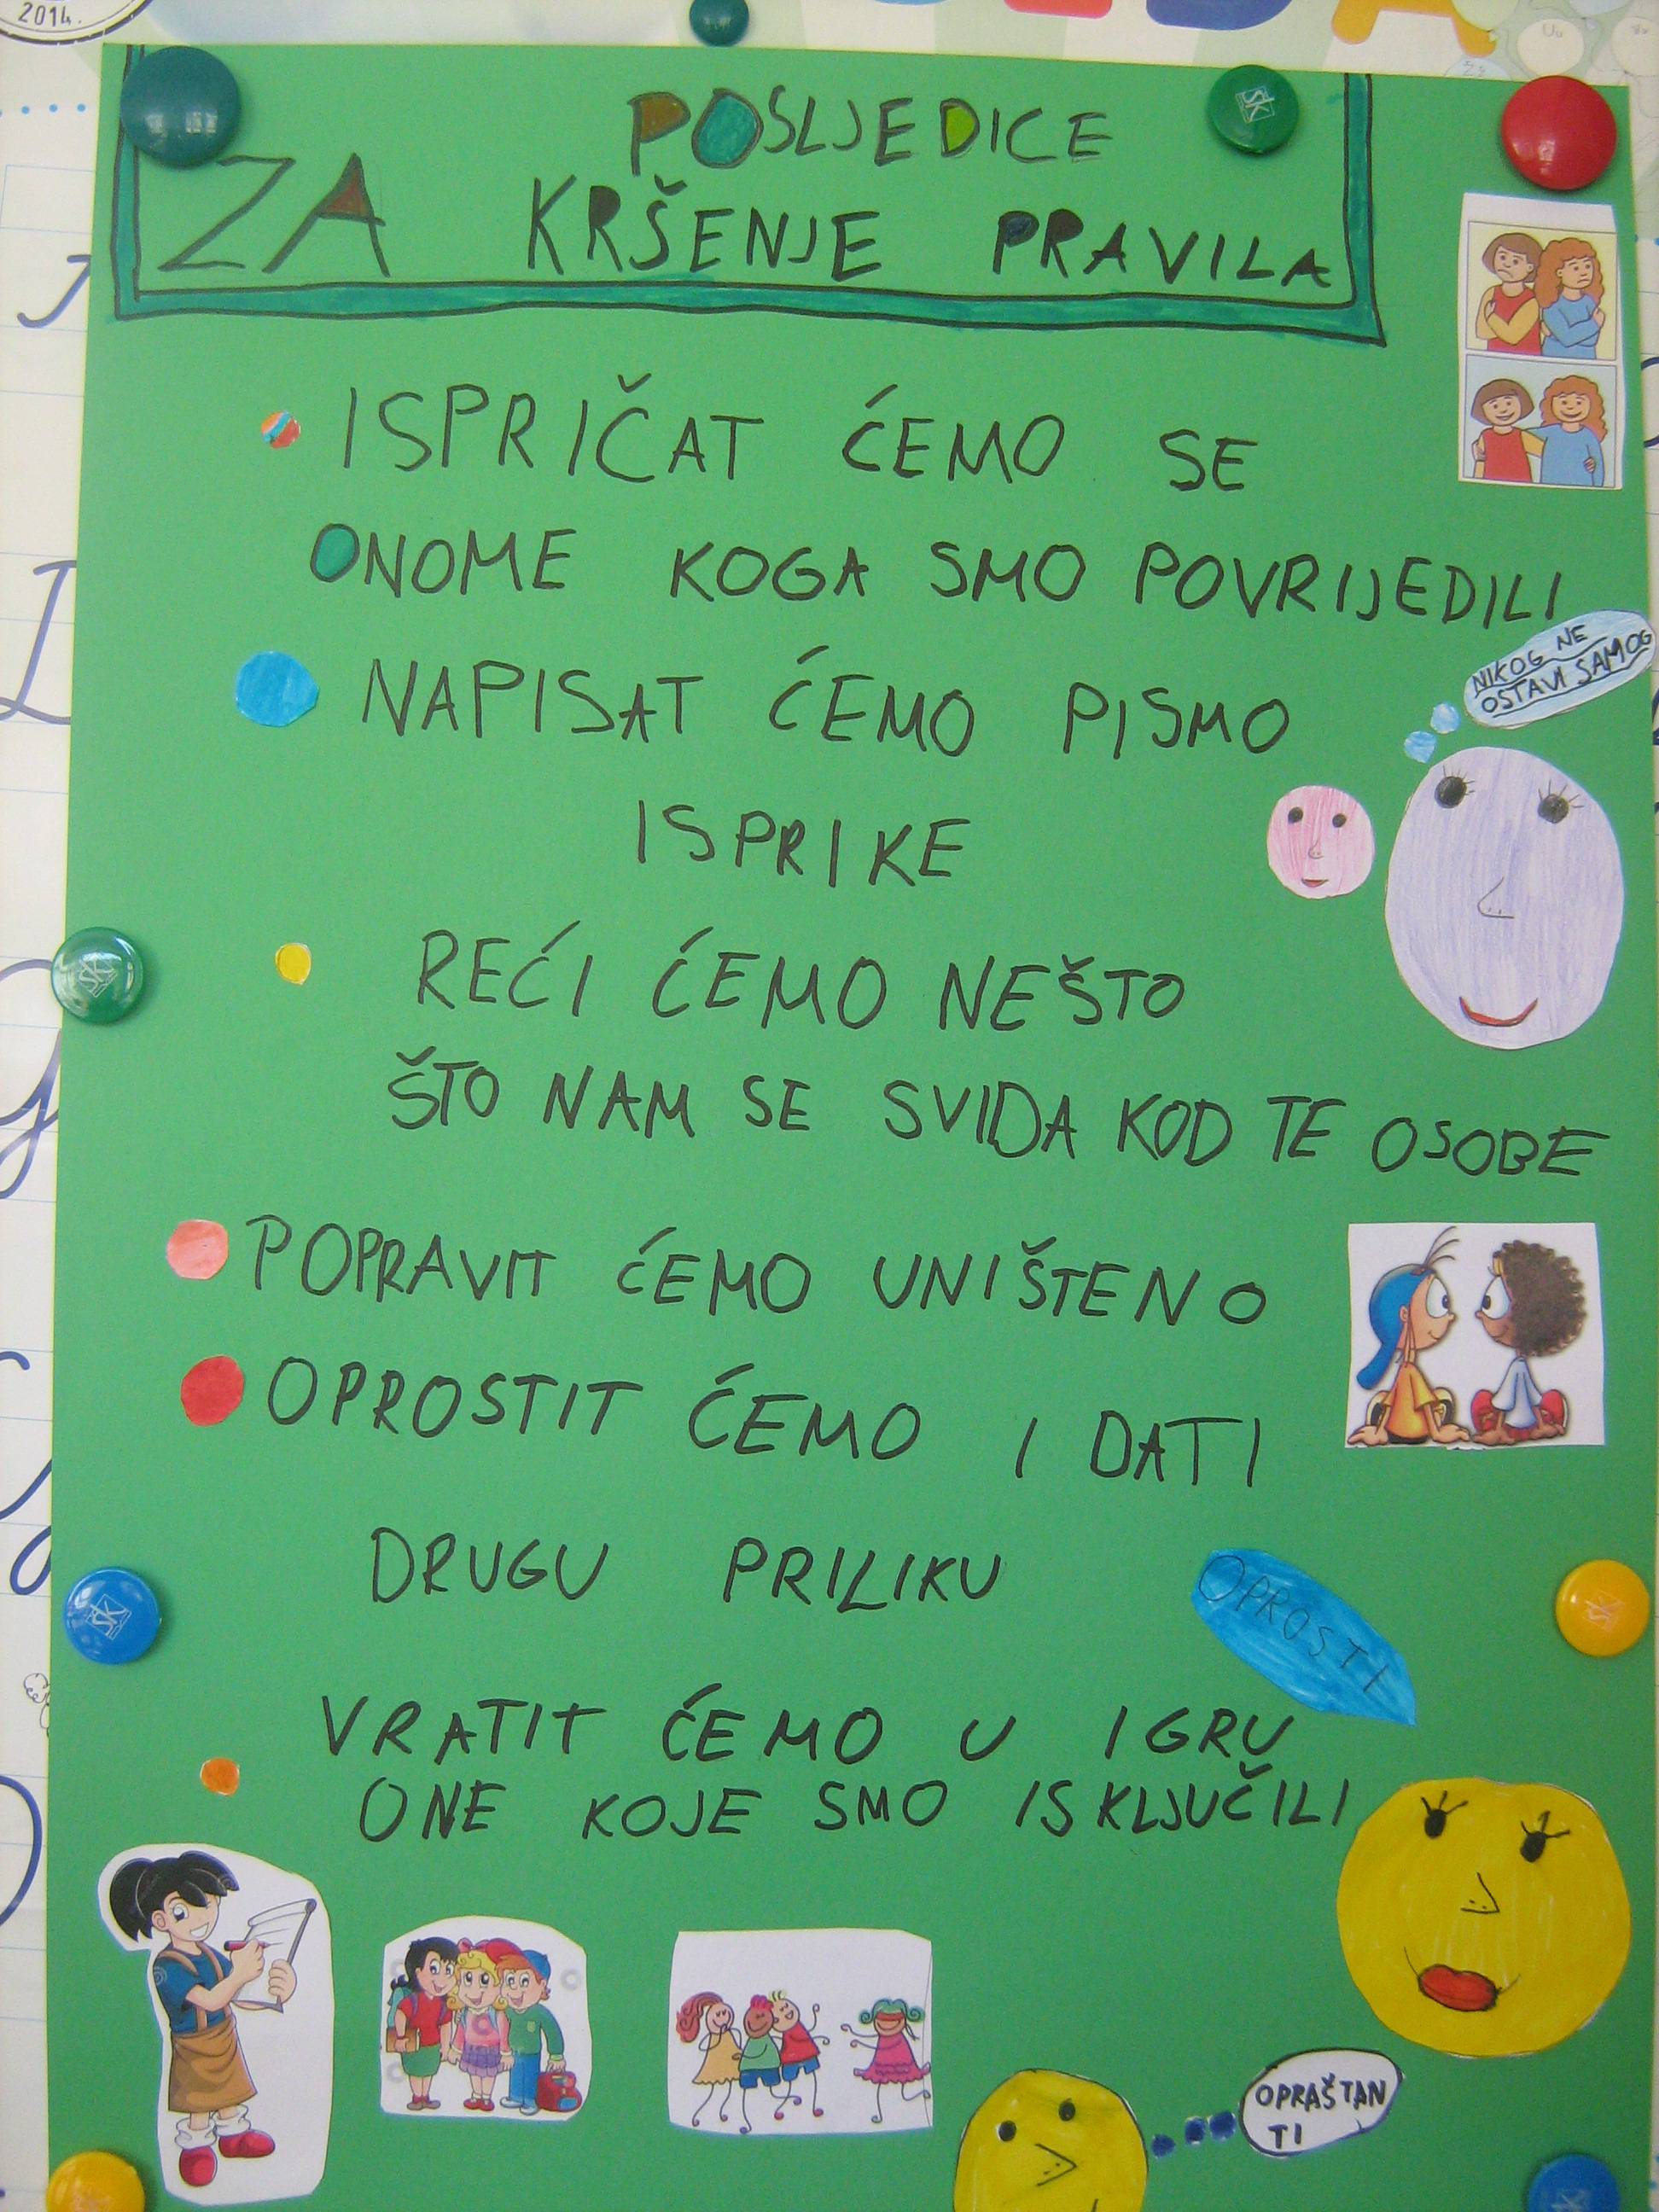 2014.
POSLJEDICE
ZA KRŠENJE PRAVILA
ISPRIČAT ĆEMO SE
ONOME KOGA SMO POVRIJEDILI
NAPISAT ĆEMO PISMO
ISPRIKE
NIKOG NE
OSTAVI SAMOG
REĆI ĆEMO NEŠTO
ŠTO NAM SE SVIĐA KOD TE OSOBE
POPRAVIT ĆEMO UNIŠTENO
OPROSTIT ĆEMO I DATI
DRUGU PRILIKU
OPROSTI
VRATIT ĆEMO U IGRU
ONE KOJE SMO ISKLJUČILI
OPRAŠTAN
TI